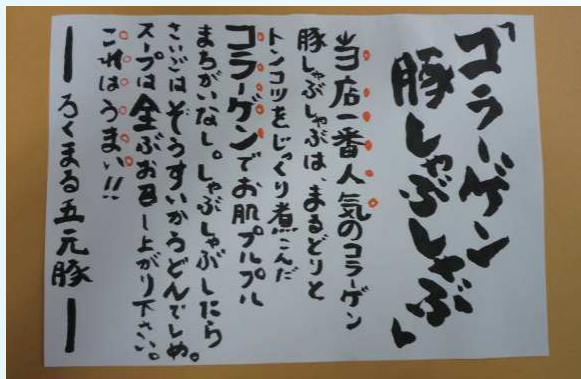 「コラーゲン
豚しゃぶしゃぶ」
当店一番人気のコラーゲン
豚しゃぶしゃぶは、まるどりと
トンコツをじっくり煮こんだ
コラーゲンでお肌プルプル
まちがいなし。しゃぶしゃぶしたら
さいごはぞうすいかうどんでしめ。
スープは全ぶお召し上がり下さい。
これはうまい!!
ーろくまる五元豚ー